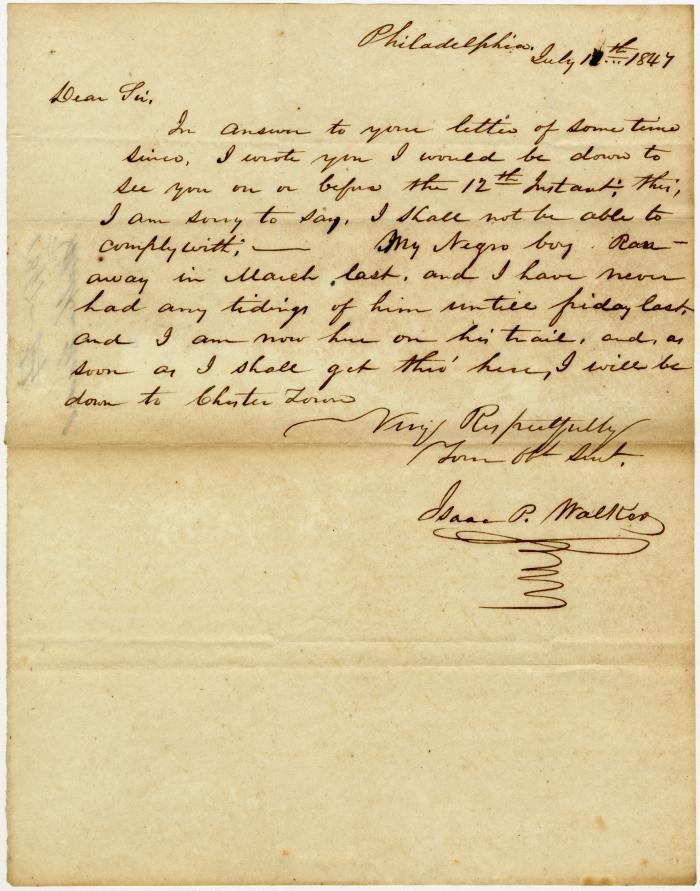 Philadelphia.
July 1th 1847
Dear Sir,
In answer to your letter of some time
since, I wrote you I would be down to
see you on or before the 12th Instant; this,
I am sorry to say, I shall not be able to
comply with; — My Negro boy Ran-
away in March last. and I have never
had any tidings of him untill friday last,
and I am now here on his trail, and, as
soon as I shall get thro' here, I will be
down to Chester Town
Very Respectfully
Your Obt Sevt.
Isaac P. Walker